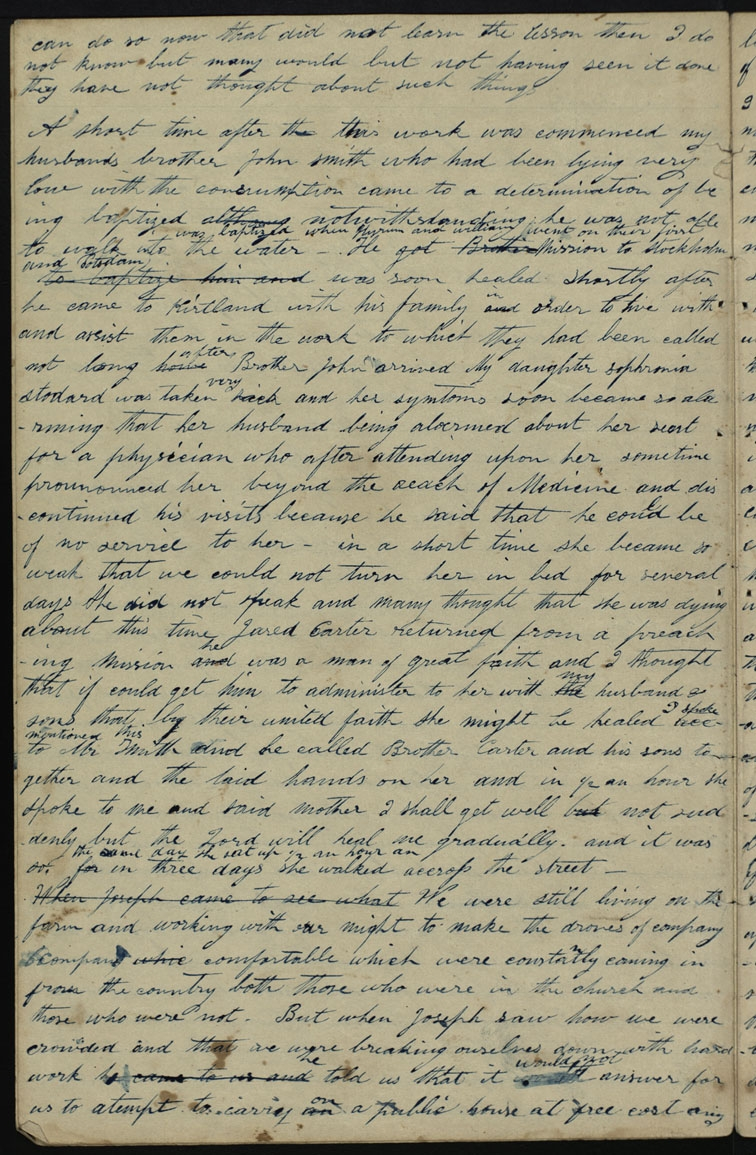 can do so now that did not learn the lesson then I do
not know but many would but not having seen it done
they have not thought about such things
A short time after the this work was commenced my
husbands brother John smith who had been lying very
low with the consumption came to a determination of be
ing baptized although notwithstanding he was not able
was baptized when Hyrum and william went on their first
to walk into the water — He got Brother Mission to Stockholm
and Potsdam
to baptize him and was soon healed shortly after
he came to Kirtland with his family and in order to live with
and assist them in the work to which they had been called
not long after Brother John arrived My daughter sophronia
very
stodard was taken sick and her symtoms soon became so ala
-rming that her husband being alarmed about her sent
for a physician who after attending upon her sometime
prounounced her beyond the reach of Medicine and dis
-continued his visits because he said that he could be
of no service to her — in a short time she became so
weak that we could not turn her in bed for several
days She did not speak and many thought that she was dying
about this time Jared Carter returned from a preach
he
-ing mission and was a man of great faith and I thought
my
that if could get him to administer to her with the husband &
I spoke
sons that by their united faith she might be healed
mentioned this
to Mr Smith and he called Brother Carter and his sons to-
gether and the laid hands on her and in ½ an hour she
spoke to me and said mother I shall get well but not sud
-denly but the Lord will heal me gradually. and it was
the same day she sat up ½ an hour an
so. for in three days she walked accross the street —
When Joseph came to see what We were still living on the
farm and working with our might to make the droves of company
company whic comfortable which were constantly coming in
from the country both those who were in the church and
those who were not. But when Joseph saw how we were
crowded and that we were breaking ourselves down with hard
he would not
work he came to us and told us that it answer for
on
us to atempt to carry an a public house at free cost any